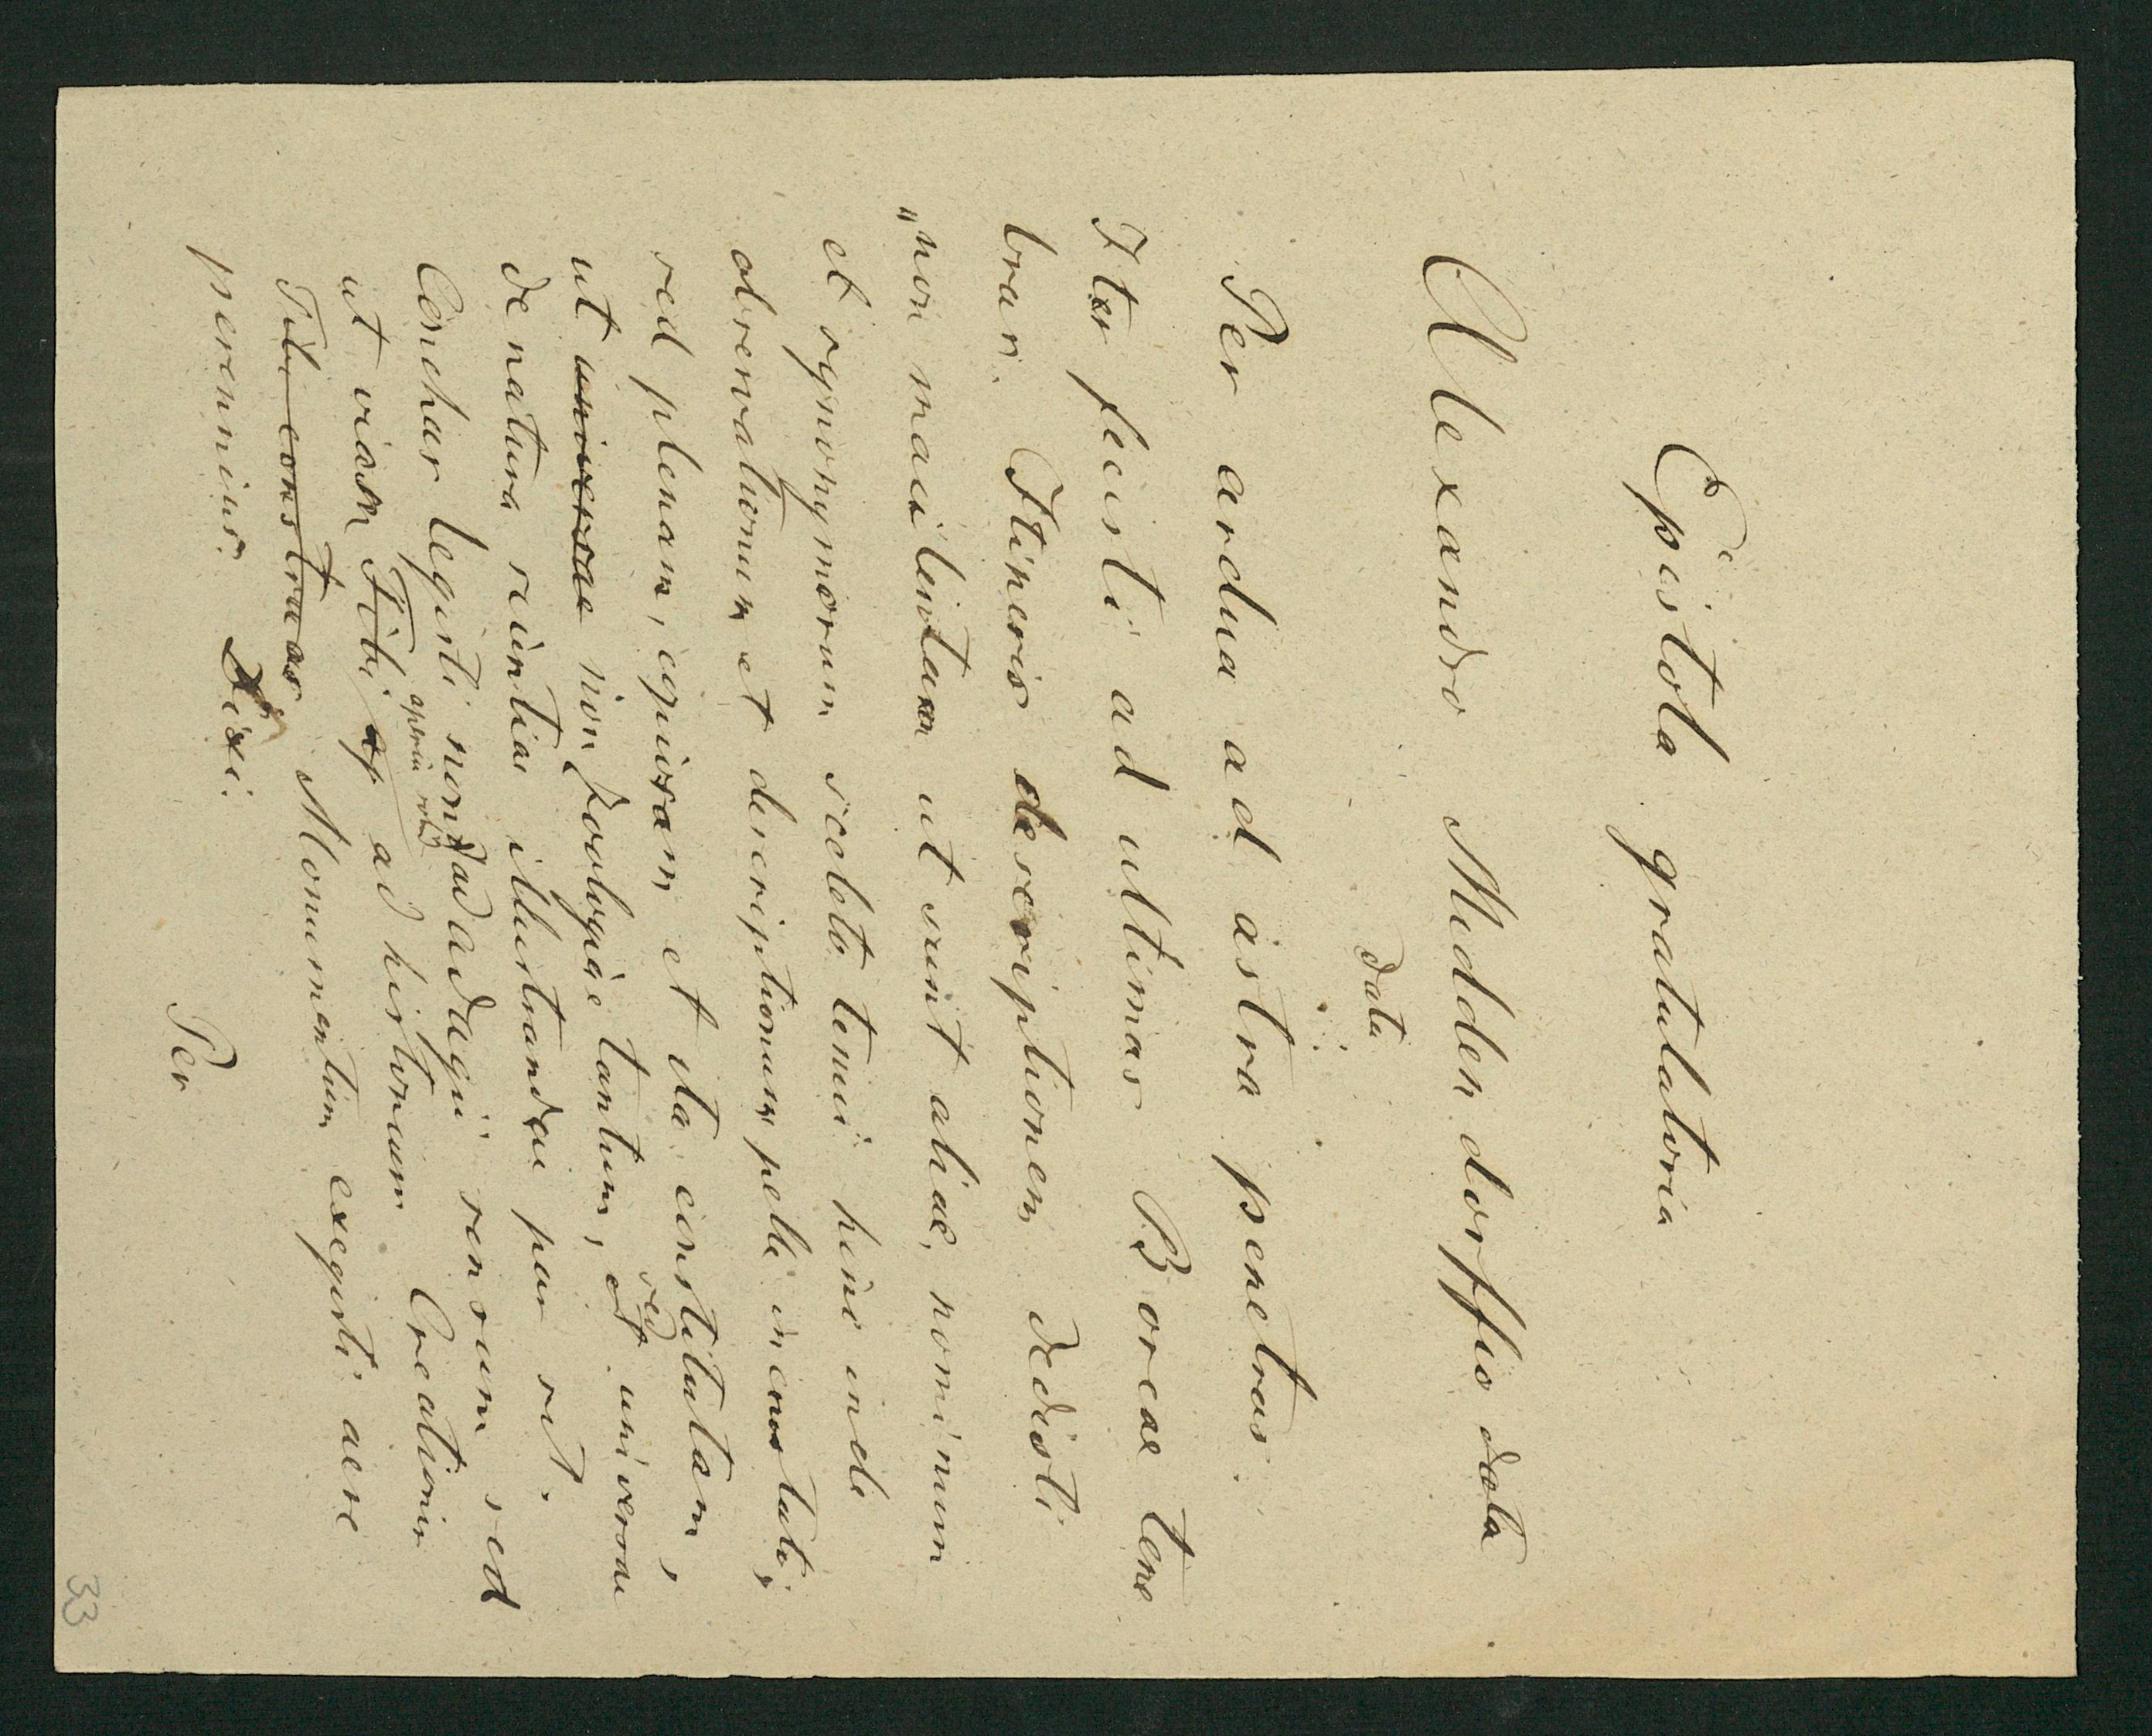 Epistola gratulatoria
Alexandro Middendorffio data
data
Per ardua ad astra penetras.
Iter fecisti ad ultimas Boreae tene
bras. Itineris descriptionem dedisti
„non macilentam ut sunt aliae, nominum
et synonymorum sceleto tenui hinc inde
observationum et descriptionum pelle incrustati;
sed plenam, copiosam et ita constitutam,
ut universae non Zoologiae tantum, et sed universae
de natura scientiae illustrandae par sit.
Conchas legisti non ad adagii sensum sed
ut viam Tibi ap ad historiam Creationis
Tibi construas Monumentum exegisti aere
perennius. Dixi.
Per
33